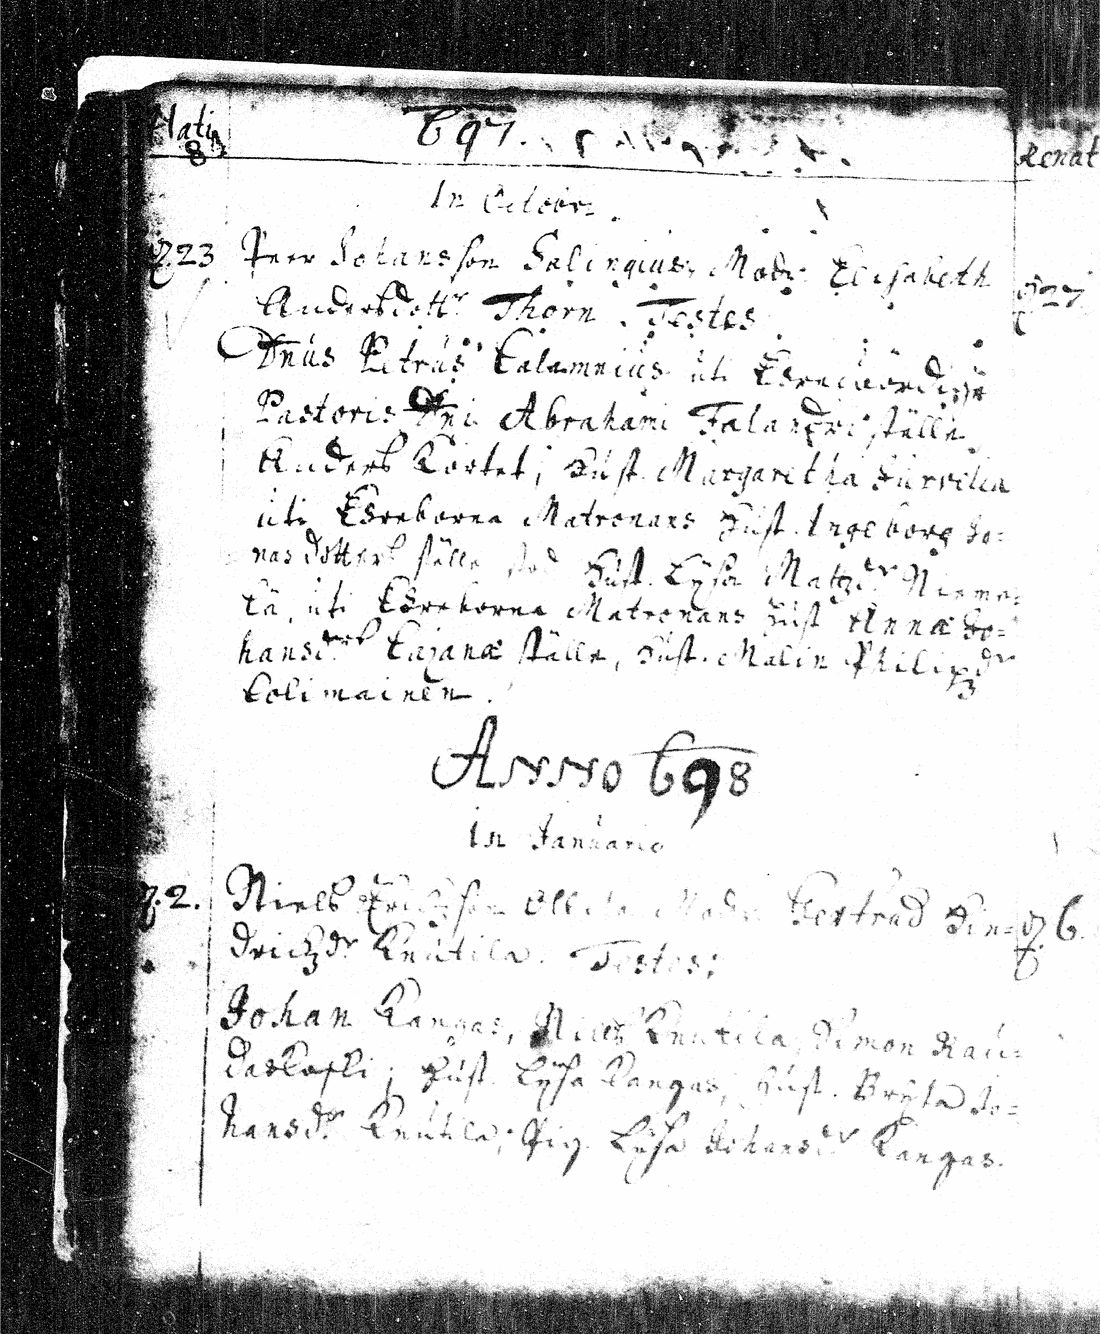 Nati
697.
Renat
8
In Octobr.
23 Peer Johansson Salingius, Modr. Elisabeth
27.
Andersdottr Thorn. Testes
Dnus Petrus Calamnius uti Ehrewördige
Pastoris Dni Abrahami Falandri ställe
Anders Kortet, Hust. Margaretha
uti Ehreborna Matronans Hust. Ingeborg Jo=
nas dotters ställe Hust. Lysa Matzdr Nieme=
lä, uti Ehreborna Matronans Hust Annæ Jo=
hansdrs Cajanæ ställe, Hust. Malin Philipzdr
Colimainen.
ANNO 698
In Januario
2. Niels Erichsson Modr. Gertrud Hin=
6.
drichzdr Knutila. Testes:
Johan Kangas, Niels Knutila, Simon Rau=
daskoski; Hust. Lysa Kangas, Hust. Bryta Jo=
hansdr Knutila, Pig. Lysa Johansdr Kangas.